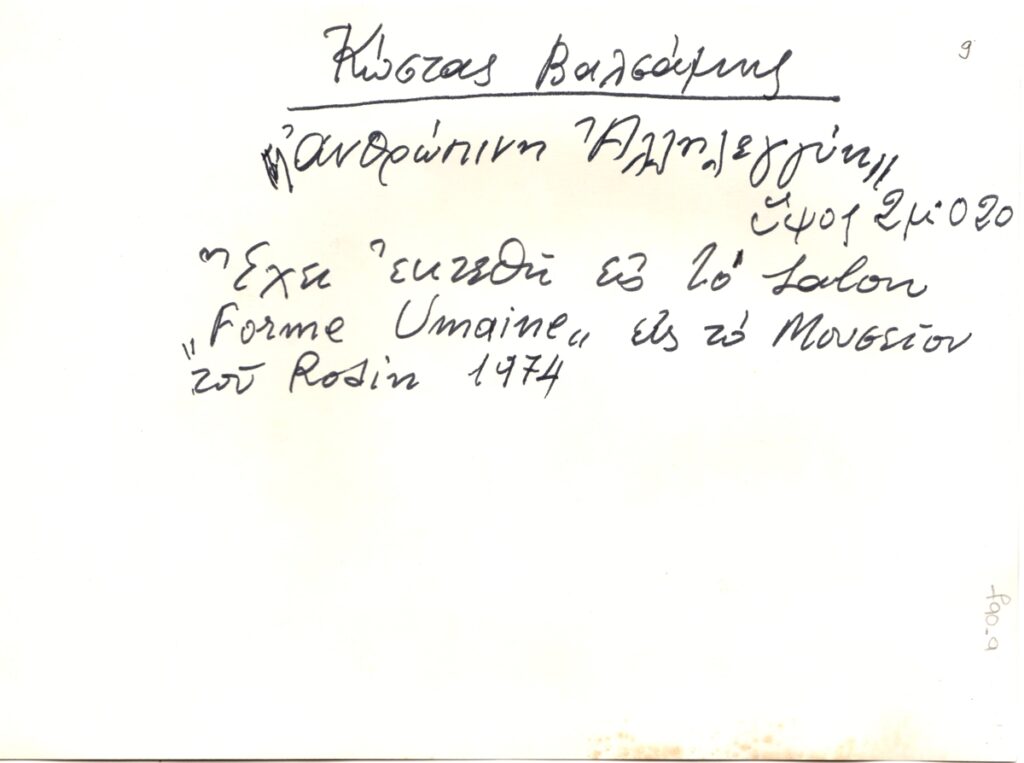 Κώστας Βαλσάμης
9
„ἀνθρώπινη Ἀλληλεγγύη„
ὕψος 2μ·020
Ἔχει ἐκτεθῆ εἰς τό Salon
„Forme Umaine„ εἰς τό Μουσεῖον
τοῦ Rodin 1974
f90-a